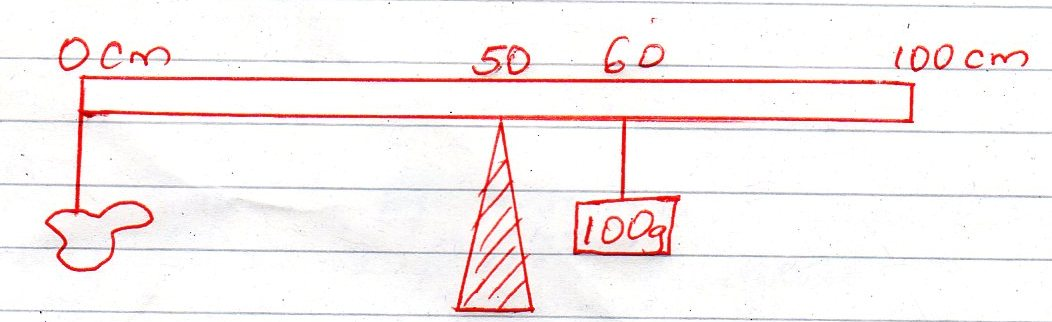 0 cm 50 60 100 cm
100g